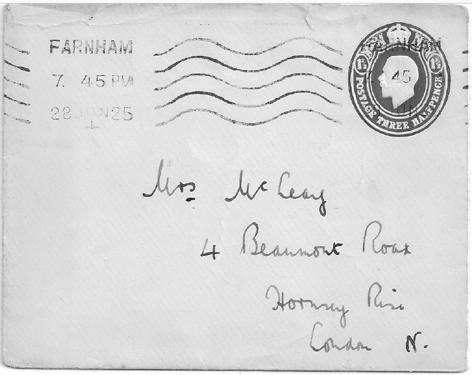 FARNHAM
7. 45 PM
28 JUN 25
FARNHAM
45
POSTAGE THREE HALFPENCE
1½ 1½
Mrs McLeay
4 Beaumont Road
Hornsey Rise
London N.